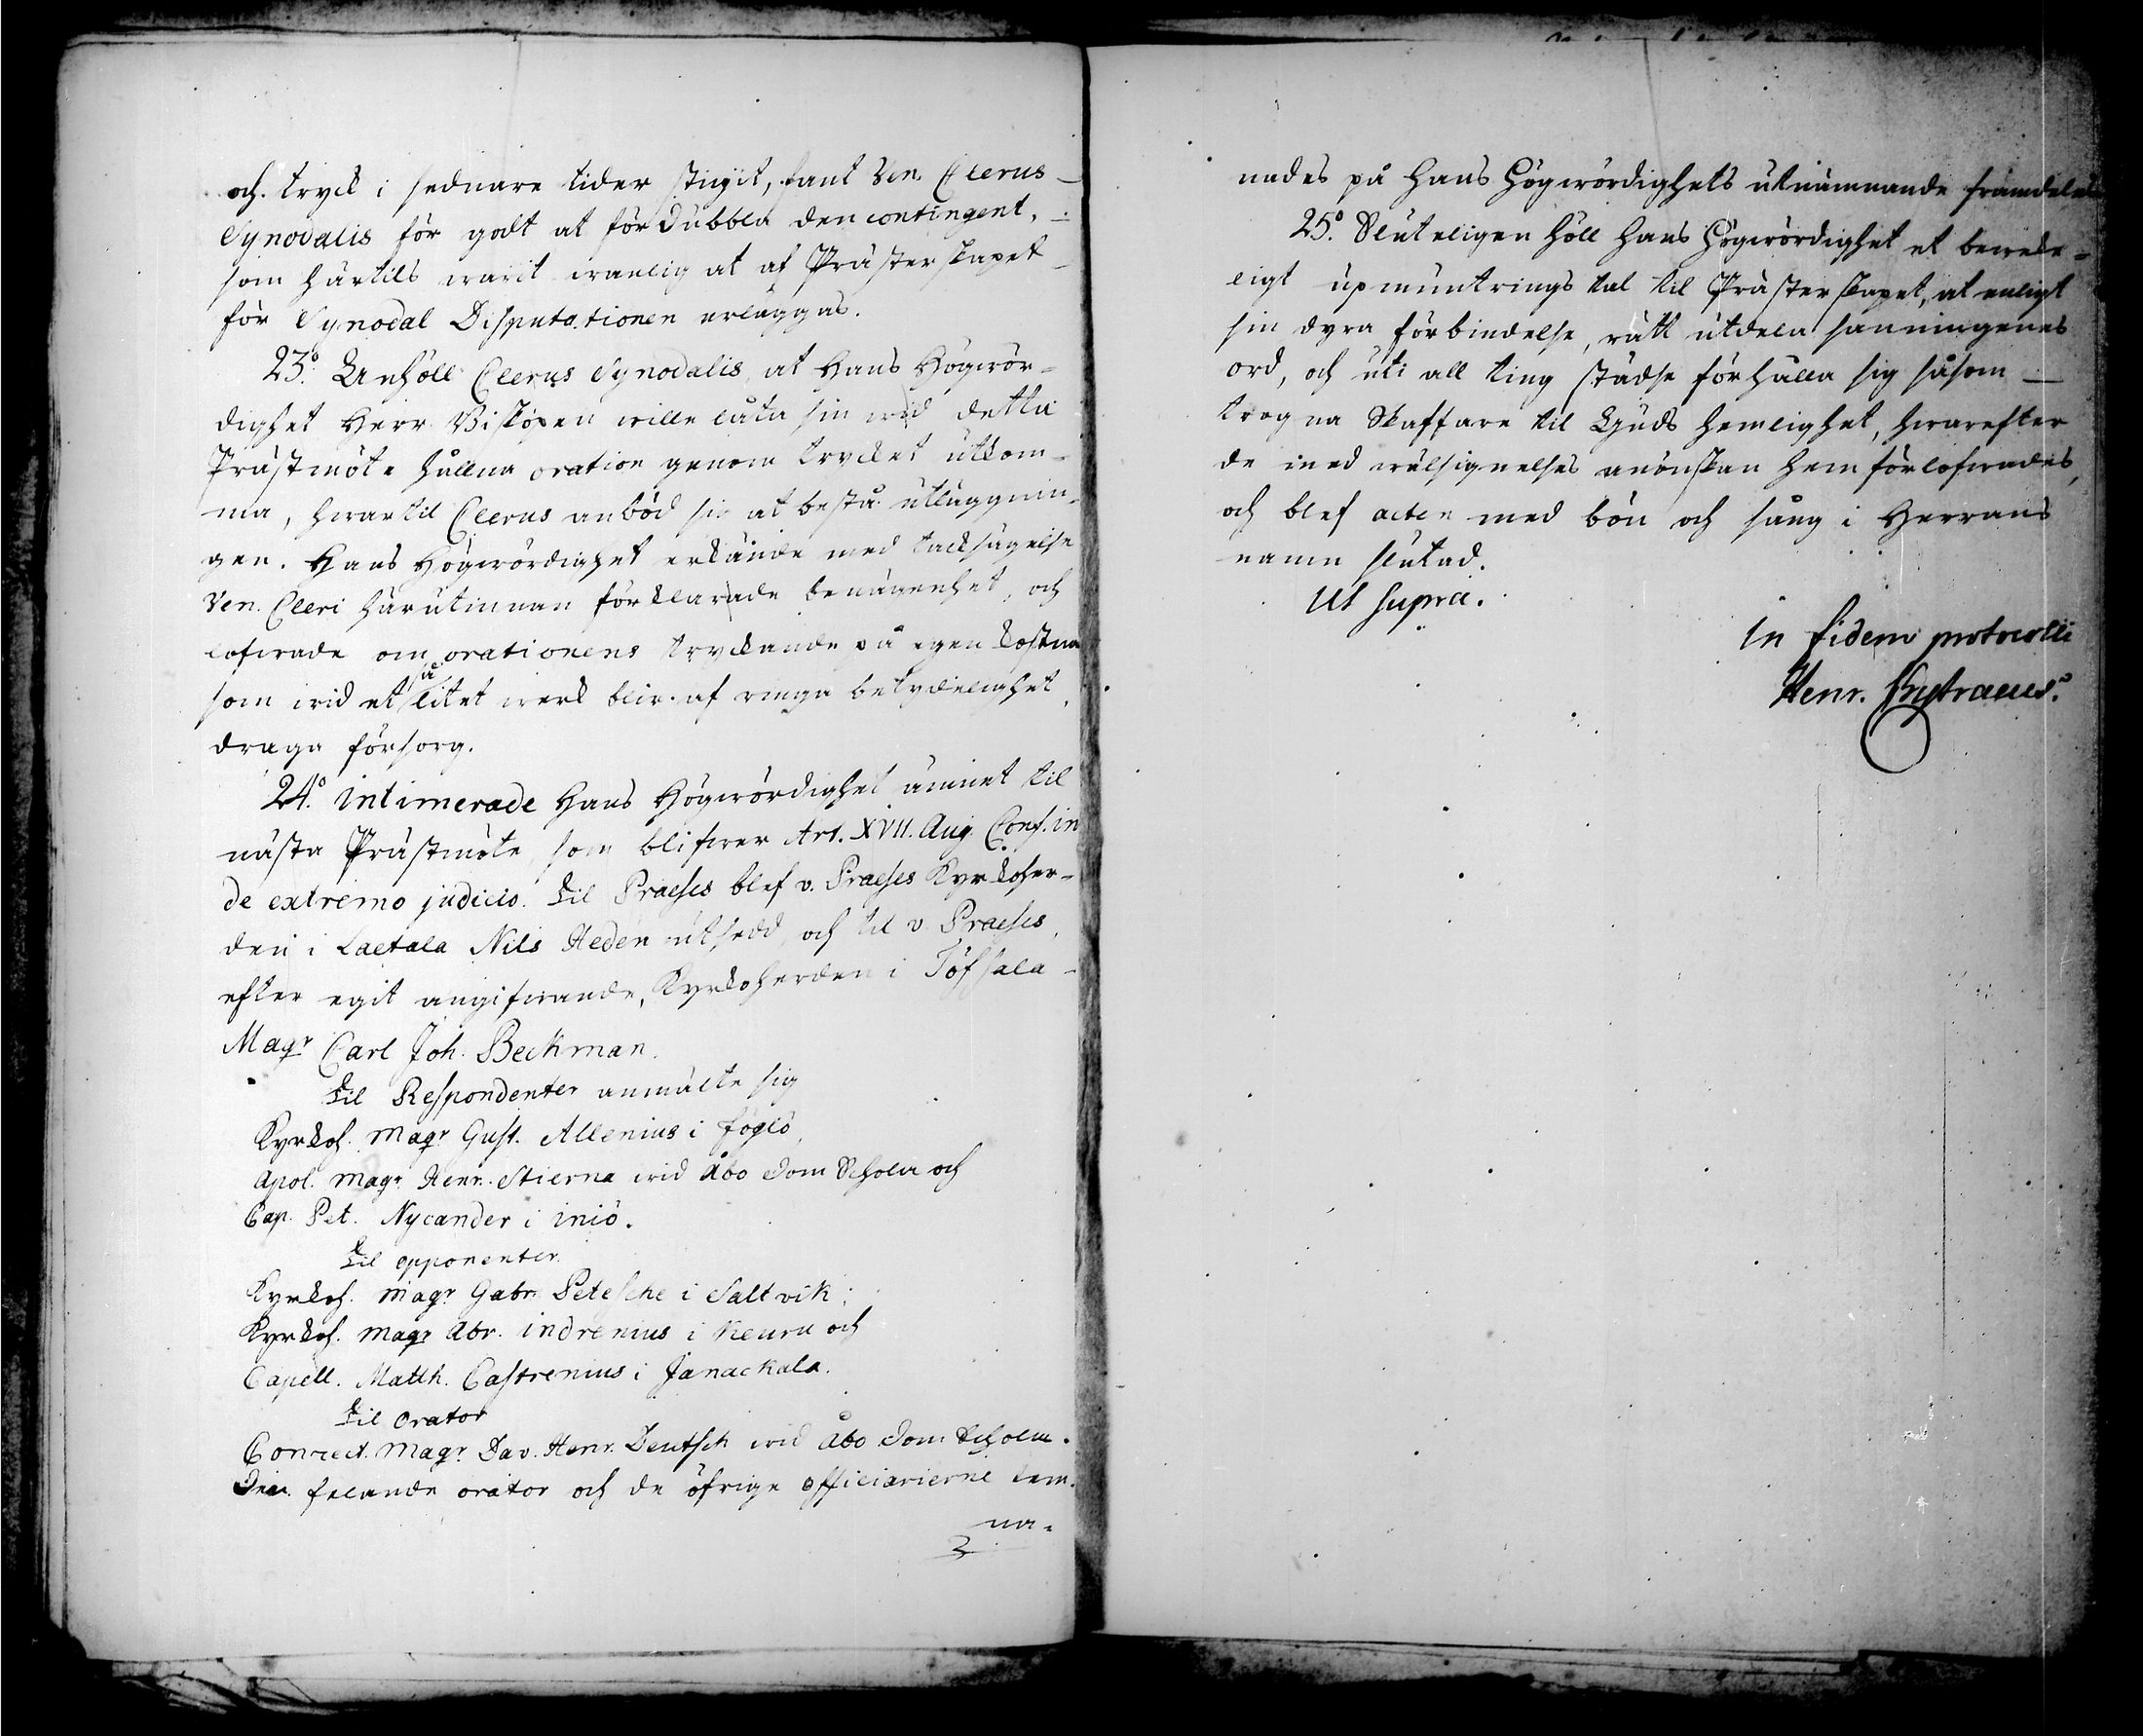 och tryck i sednare tider stigit, fant Ven. Clerus
Synodalis för godt at fördubbla den contingent,
som härtils warit wanlig at af Prästerskapet
för Synodal Disputationen erläggas.
23:o Anhöll Clerus Synodalis, at Hans Högwör-
dighet Herr Biskopen wille låta sin wid detta
Prästmöte hållna oration genom trycket utkom-
ma, hwartil Clerus anböd sig at bestå utläggnin-
gen. Hans Högwördighet erkände med tacksägelse
Ven. Cleri härutinnan förklarade benägenhet, och
lofwade om orationens tryckande på egen kostnad
som wid et så litet werk blir af ringa betydelighet,
draga försorg.
24:o intimerade Hans Högwördighet ämnet til
nästa Prästmöte, som blifwer Art. XVII. Aug. Conf. in
de extremo judicio. Til Praeses blef v. Praeses Kyrkoher-
den i Laetala Nils Heden utsedd, och til v. Praeses,
efter egit angifwande, Kyrkoherden i Töfsala
Magr Carl Joh. Beckman.
Til Respondenter anmälte sig
Kyrkoh. Magr Gust. Allenius i Föglö,
Apol. Magr. Henr. Stierna wid Åbo Dom Schola och
Cap. Pet. Nycander i Iniö.
Til opponenter.
Kyrkoh. Magr Gabr. Petesche i Saltvik;
Kyrkoh. Magr Abr. Indrenius i Keuru och
Capell. Matth. Castrenius i Janackala.
Til Orator
Conrect. Magr. Dav. Henr. Deutsch wid Åbo Dom Schola.
Den felande orator och de öfrige officiarierne lem-
na-
nades på Hans Högwördighets utnämnande framdeles
25:o Sluteligen höll Hans Högwördighet et bewek-
ligt upmuntrings tal til Prästerskapet, at enligt
sin dyra förbindelse, rätt utdela sanningenes
ord, och uti all ting städse förhålla sig såsom
trogna Skaffare til Guds hemlighet, hwarefter
de med wälsignelses anönskan hem förlofwades,
och blef acten med bön och sång i Herrans
namn slutad.
Ut supra.
In fidem protocolli
Henr.